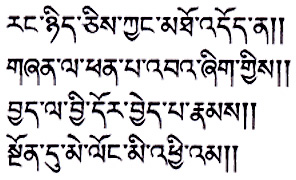 རང་ཉིད་ཅིས་ཀྱང་མཐོ་འདོད་ན།།
གཞན་ལ་ཕན་པ་འབའ་ཞིག་གྱིས།།
བྱད་ལ་བྱི་དོར་བྱེད་པ་རྣམས།།
སྔོན་དུ་མེ་ལོང་མི་འཕྱི་འམ།།